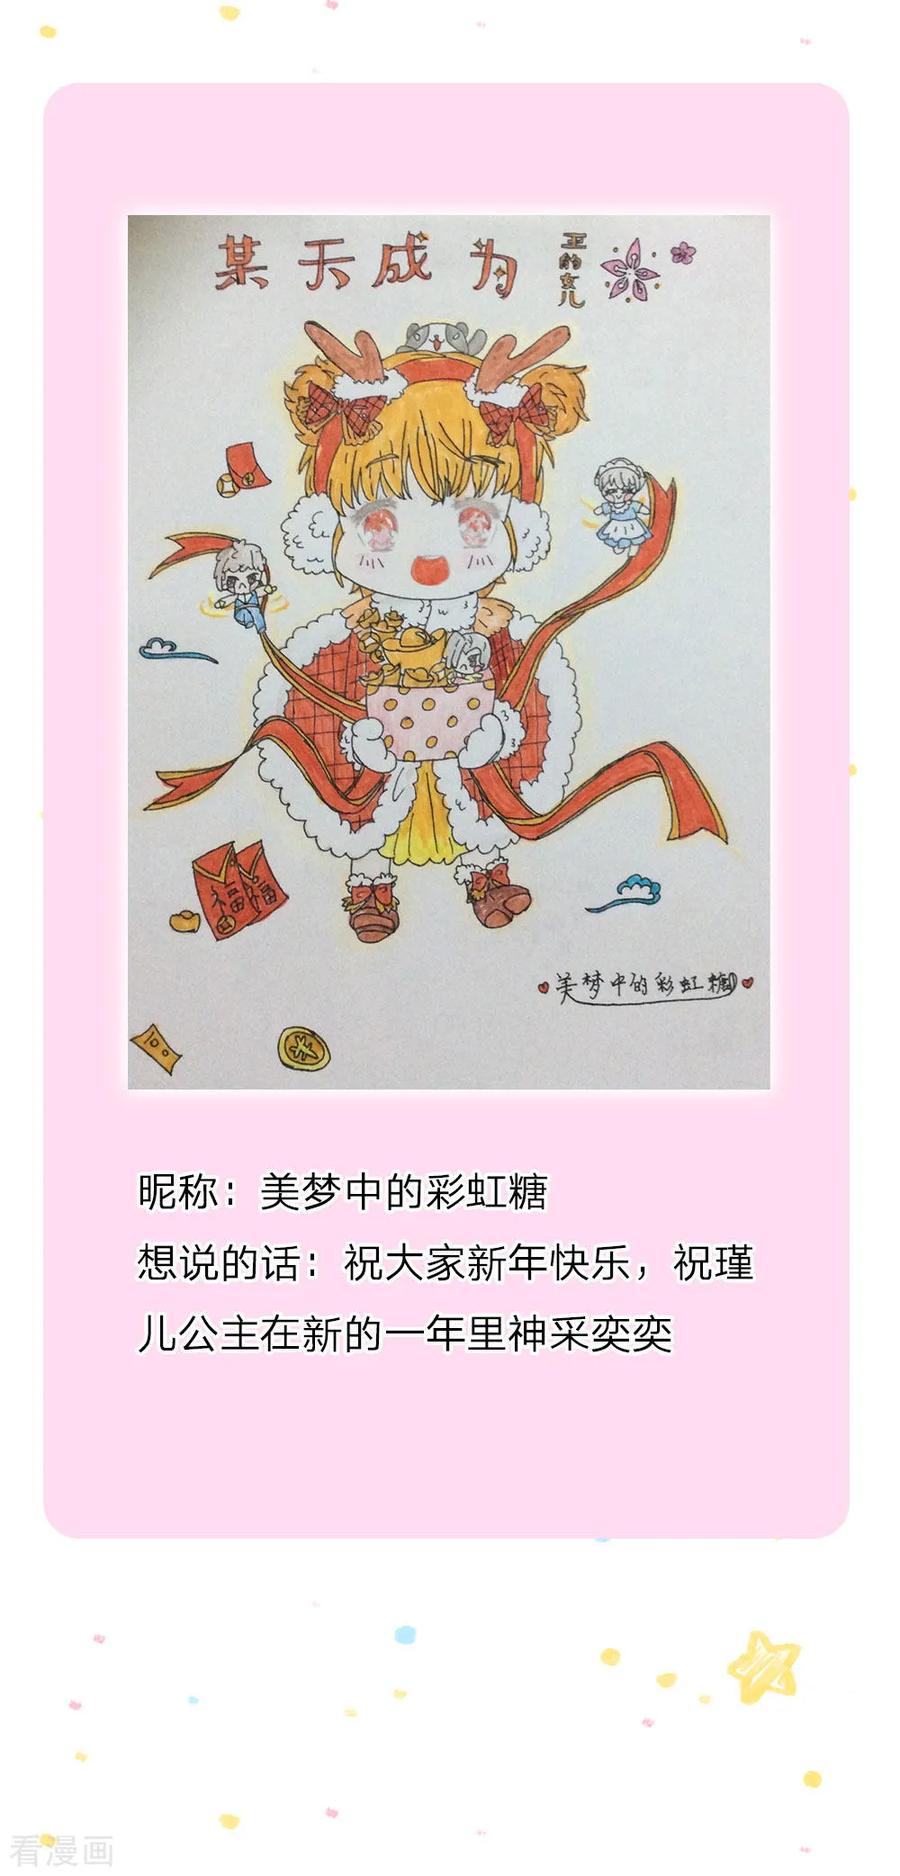 某天成为
王的女儿
福
福
美梦中的彩虹糖
昵称：美梦中的彩虹糖
想说的话：祝大家新年快乐，祝瑾
儿公主在新的一年里神采奕奕
看漫画